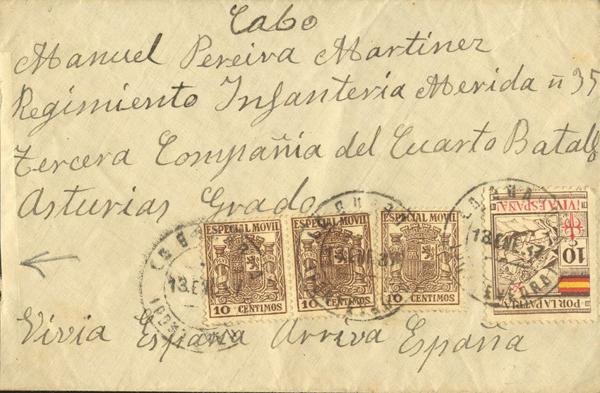 Cabo
Manuel Pereira Martinez
Regimiento Infanteria Merida ñ 35
Tercera Compañia del Cuarto Batall
Asturias Grado
ESPECIAL MOVIL ESPECIAL MOVIL ESPECIAL MOVIL
10 CENTIMOS 10 CENTIMOS 10 CENTIMOS
¡VIVA ESPAÑA!
10
POR LA PATRIA
Vivia España Arriva España